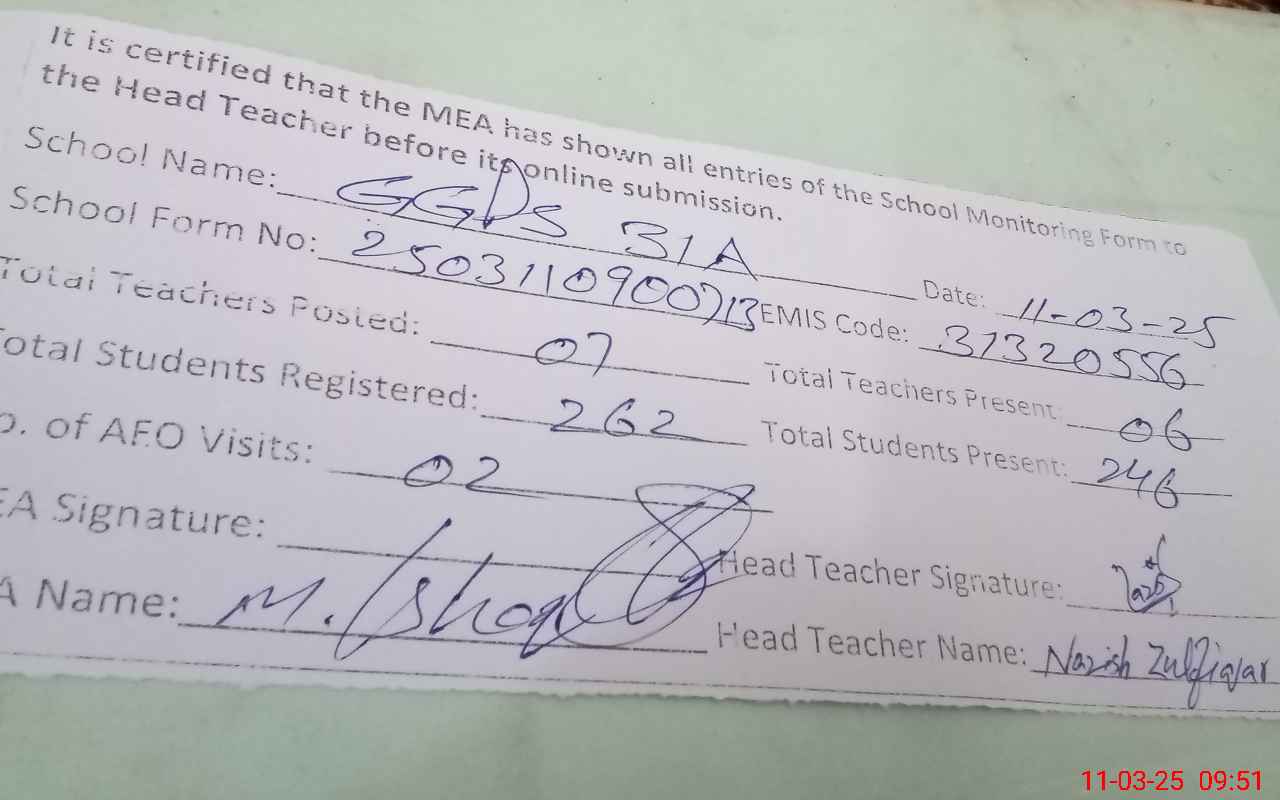 It is certified that the MEA has shown all entries of the School Monitoring Form to
the Head Teacher before its online submission.
School Name: GGPS 31A Date: 11-03-25
School Form No: 2503110900713 EMIS Code: 31320556
Total Teachers Posted: 07 Total Teachers Present: 06
otal Students Registered: 262 Total Students Present: 246
o. of AEO Visits: 02
EA Signature: Head Teacher Signature:
A Name: M. Ishaq Head Teacher Name: Nazish Zulfiqar
11-03-25 09:51